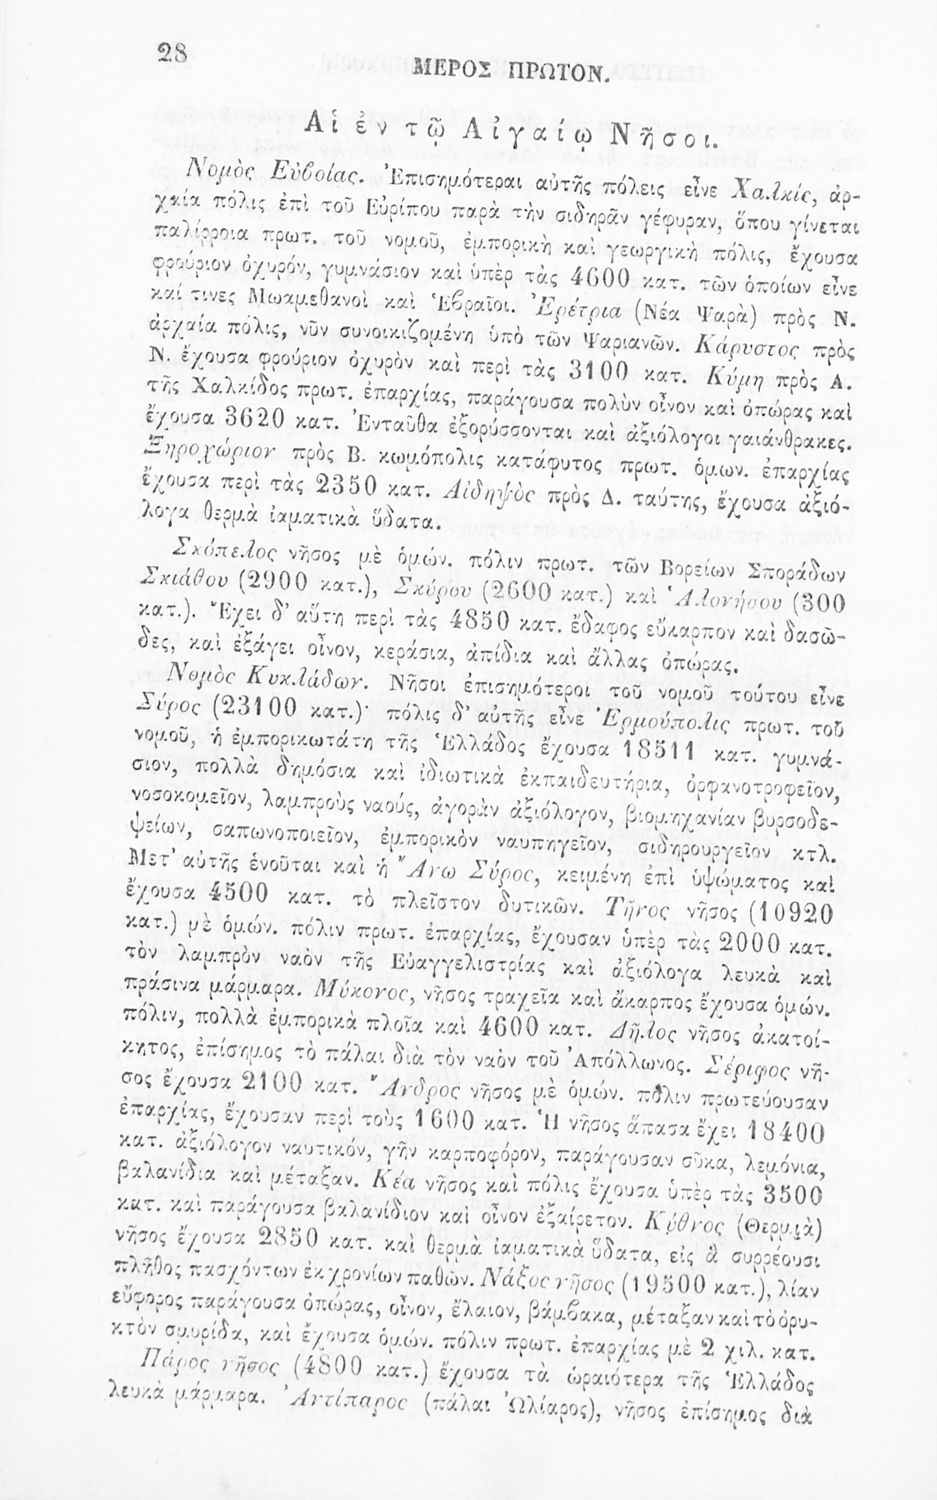 28
ΜΕΡΟΣ ΠΡΩΤΟΝ.
Αἱ ἐν τῷ Αἰγαίῳ Νῆσοι.
Νομὸς Εὐβοίας. Ἐπισημότεραι αὐτῆς πόλεις εἶνε Χαλκίς, ἀρ-
χαία πόλις ἐπὶ τοῦ Εὐρίπου παρὰ τὴν σιδηρᾶν γέφυραν, ὅπου γίνεται
παλίρροια πρωτ. τοῦ νομοῦ, ἐμπορικὴ καὶ γεωργικὴ πόλις, ἔχουσα
φρούριον ὀχυρόν, γυμνάσιον καὶ ὑπὲρ τὰς 4600 κατ. τῶν ὁποίων εἶνε
καί τινες Μωαμεθανοὶ καὶ Ἑβραῖοι. Ἐρέτρια (Νέα Ψαρὰ) πρὸς Ν.
ἀρχαία πόλις, νῦν συνοικιζομένη ὑπὸ τῶν Ψαριανῶν. Κάρυστος πρὸς
Ν. ἔχουσα φρούριον ὀχυρὸν καὶ περὶ τὰς 3100 κατ. Κύμη πρὸς Α.
τῆς Χαλκίδος πρωτ. ἐπαρχίας, παράγουσα πολὺν οἶνον καὶ ὀπώρας καὶ
ἔχουσα 3620 κατ. Ἐνταῦθα ἐξορύσσονται καὶ ἀξιόλογοι γαιάνθρακες.
Ξηροχώριον πρὸς Β. κωμόπολις κατάφυτος πρωτ. ὁμων. ἐπαρχίας
ἔχουσα περὶ τὰς 2350 κατ. Αἰδηψὸς πρὸς Δ. ταύτης, ἔχουσα ἀξιό-
λογα θερμὰ ἰαματικὰ ὕδατα.
Σκόπελος νῆσος μὲ ὁμών. πόλιν πρωτ. τῶν Βορείων Σποράδων
Σκιάθου (2900 κατ.), Σκύρου (2600 κατ.) καὶ Ἁλονήσου (300
κατ.). Ἔχει δ' αὕτη περὶ τὰς 4850 κατ. ἔδαφος εὔκαρπον καὶ δασῶ-
δες, καὶ ἐξάγει οἶνον, κεράσια, ἀπίδια καὶ ἄλλας ὀπώρας.
Νομὸς Κυκλάδων. Νῆσοι ἐπισημότεροι τοῦ νομοῦ τούτου εἶνε
Σύρος (23100 κατ.)· πόλις δ' αὐτῆς εἶνε Ἑρμούπολις πρωτ. τοῦ
νομοῦ, ἡ ἐμπορικωτάτη τῆς Ἑλλάδος ἔχουσα 18511 κατ. γυμνά-
σιον, πολλὰ δημόσια καὶ ἰδιωτικὰ ἐκπαιδευτήρια, ὀρφανοτροφεῖον,
νοσοκομεῖον, λαμπροὺς ναούς, ἀγορὰν ἀξιόλογον, βιομηχανίαν βυρσοδε-
ψείων, σαπωνοποιεῖον, ἐμπορικὸν ναυπηγεῖον, σιδηρουργεῖον κτλ.
Μετ' αὐτῆς ἑνοῦται καὶ ἡ Ἄνω Σύρος, κειμένη ἐπὶ ὑψώματος καὶ
ἔχουσα 4500 κατ. τὸ πλεῖστον δυτικῶν. Τῆνος νῆσος (10920
κατ.) μὲ ὁμών. πόλιν πρωτ. ἐπαρχίας, ἔχουσαν ὑπὲρ τὰς 2000 κατ.
τὸν λαμπρὸν ναὸν τῆς Εὐαγγελιστρίας καὶ ἀξιόλογα λευκὰ καὶ
πράσινα μάρμαρα. Μύκονος, νῆσος τραχεῖα καὶ ἄκαρπος ἔχουσα ὁμών.
πόλιν, πολλὰ ἐμπορικὰ πλοῖα καὶ 4600 κατ. Δῆλος νῆσος ἀκατοί-
κητος, ἐπίσημος τὸ πάλαι διὰ τὸν ναὸν τοῦ Ἀπόλλωνος. Σέριφος νῆ-
σος ἔχουσα 2100 κατ. Ἄνδρος νῆσος μὲ ὁμών. πόλιν πρωτεύουσαν
ἐπαρχίας, ἔχουσαν περὶ τοὺς 1600 κατ. Ἡ νῆσος ἅπασα ἔχει 18400
κατ. ἀξιόλογον ναυτικόν, γῆν καρποφόρον, παράγουσαν σῦκα, λεμόνια,
βαλανίδια καὶ μέταξαν. Κέα νῆσος καὶ πόλις ἔχουσα ὑπὲρ τὰς 3500
κατ. καὶ παράγουσα βαλανίδιον καὶ οἶνον ἐξαίρετον. Κύθνος (Θερμιὰ)
νῆσος ἔχουσα 2850 κατ. καὶ θερμὰ ἰαματικὰ ὕδατα, εἰς ἃ συρρέουσι
πλῆθος πασχόντων ἐκ χρονίων παθῶν. Νάξος νῆσος (19500 κατ.), λίαν
εὔφορος παράγουσα ὀπώρας, οἶνον, ἔλαιον, βάμβακα, μέταξαν καὶ τὸ ὀρυ-
κτὸν σμυρίδα, καὶ ἔχουσα ὁμών. πόλιν πρωτ. ἐπαρχίας μὲ 2 χιλ. κατ.
Πάρος νῆσος (4800 κατ.) ἔχουσα τὰ ὡραιότερα τῆς Ἑλλάδος
λευκὰ μάρμαρα. Ἀντίπαρος (πάλαι Ὠλίαρος), νῆσος ἐπίσημος διὰ